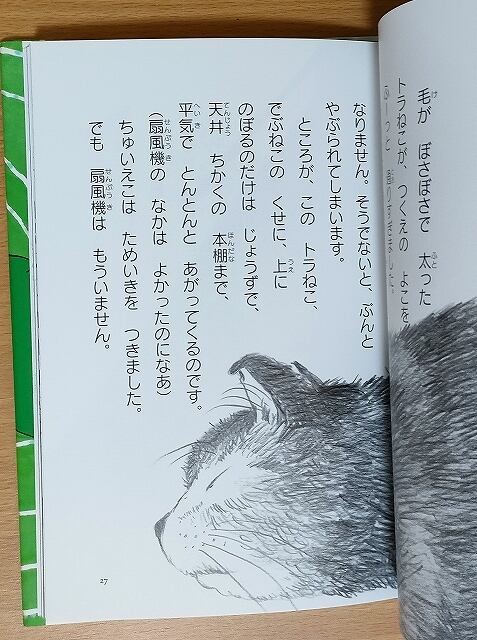 毛が ぼさぼさで 太った
トラねこが、つくえの よこを
なりません。そうでないと、ぷんと
やぶられてしまいます。
ところが、この トラねこ、
でぶねこの くせに、上に
のぼるのだけは じょうずで、
天井 ちかくの 本棚まで、
平気で とんとんと あがってくるのです。
(扇風機の なかは よかったのになあ)
ちゅいえこは ためいきを つきました。
でも 扇風機は もういません。
27